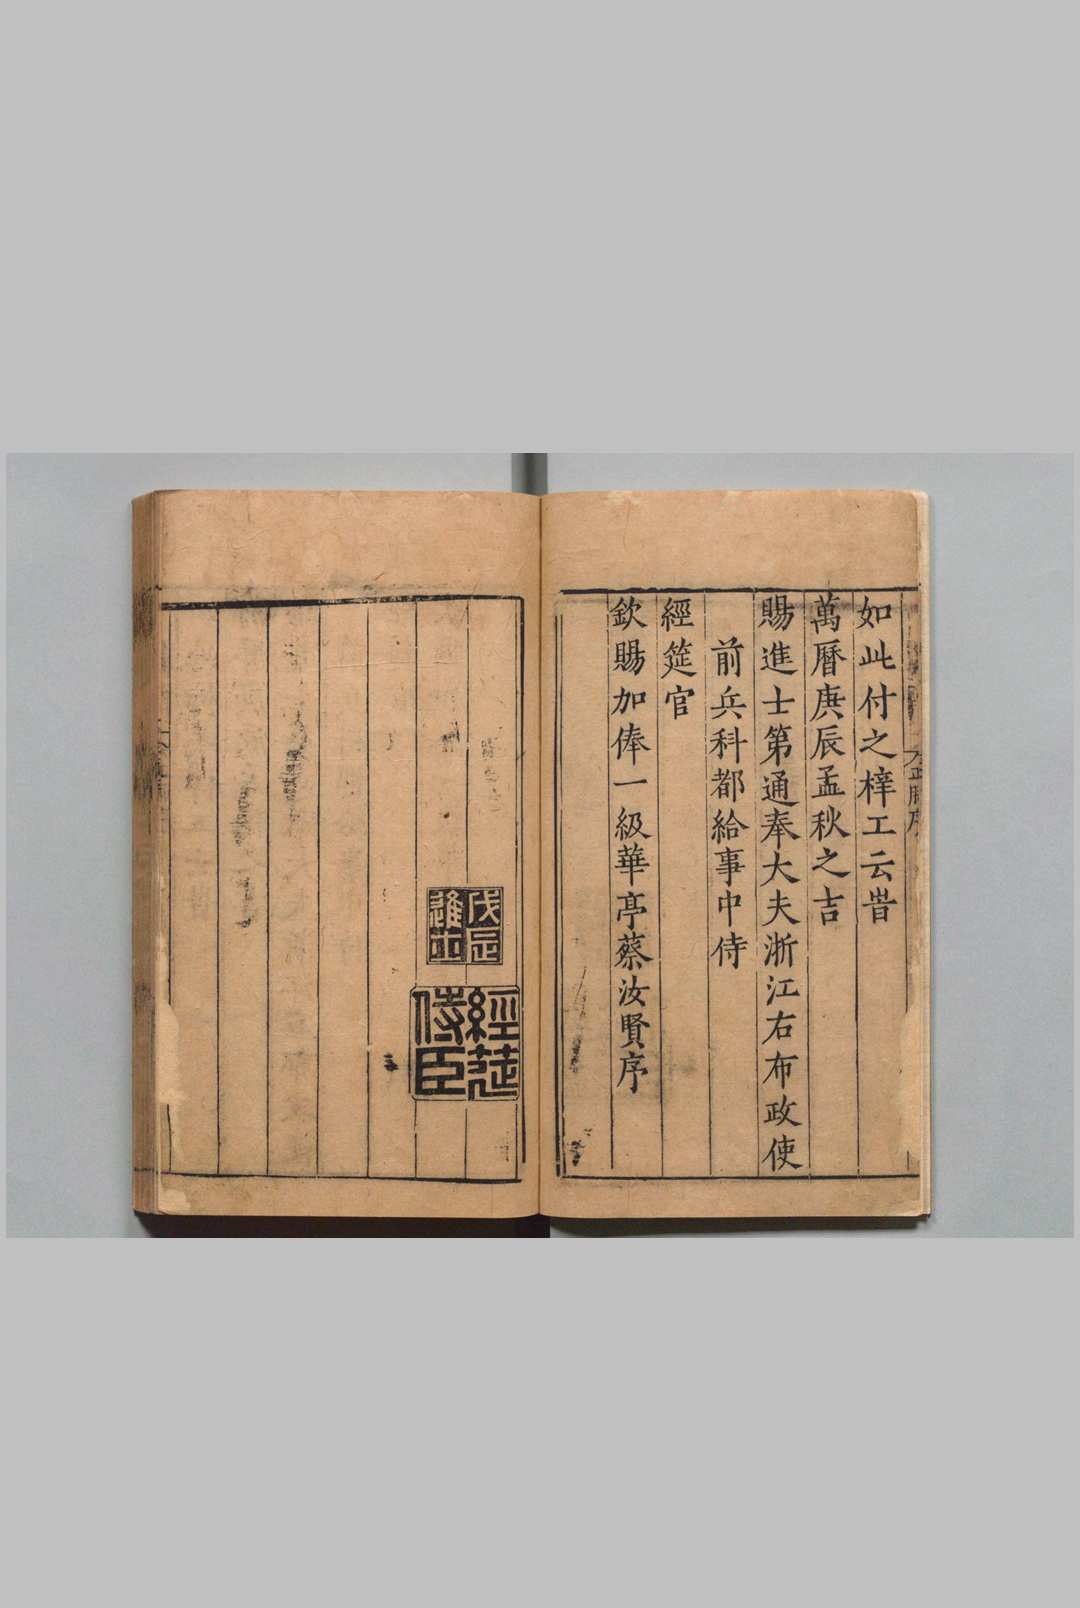 如此付之梓工云旹
萬曆庚辰孟秋之吉
賜進士第通奉大夫浙江右布政使
前兵科都給事中侍
經筵官
欽賜加俸一級華亭蔡汝賢序
戊辰
進士
經筵
侍臣